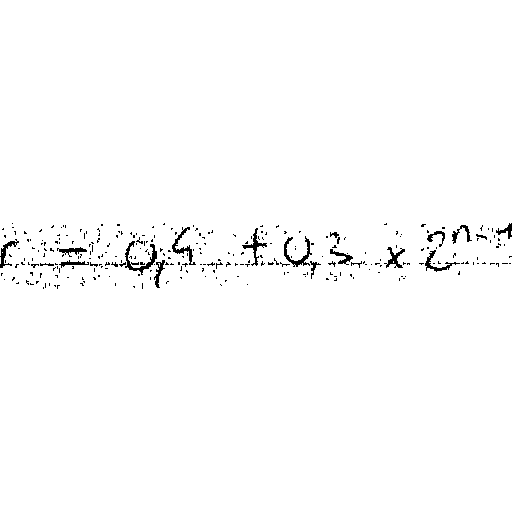 r = 0,4 + 0,3 x 2^{n-1}